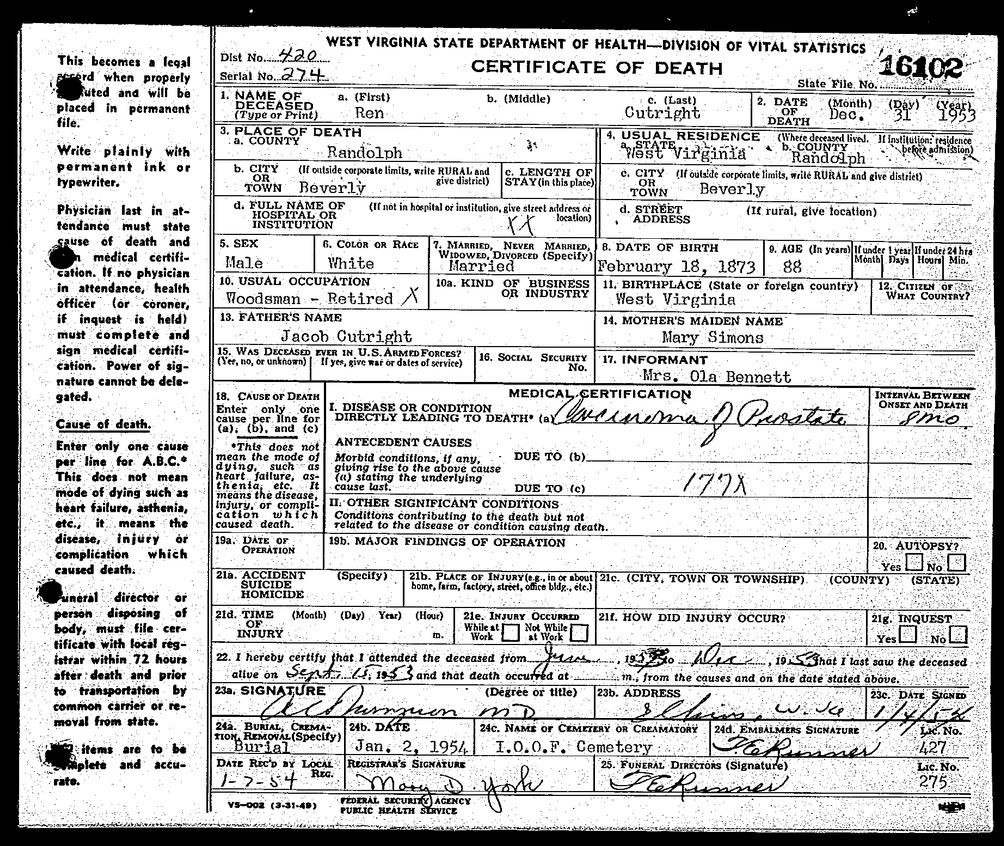 WEST VIRGINIA STATE DEPARTMENT OF HEALTH—DIVISION OF VITAL STATISTICS
Dist No. 420
Serial No. 274
CERTIFICATE OF DEATH
16102
State File No.
This becomes a legal
record when properly
uted and will be
placed in permanent
file.
Write plainly with
permanent ink or
typewriter.
Physician last in at-
tendance must state
cause of death and
n medical certifi-
cation. If no physician
in attendance, health
officer (or coroner,
if inquest is held)
must complete and
sign medical certifi-
cation. Power of sig-
nature cannot be dele-
gated.
Cause of death.
Enter only one cause
per line for A.B.C.*
This does not mean
mode of dying such as
heart failure, asthenia,
etc., it means the
disease, injury or
complication which
caused death.
uneral director or
person disposing of
body, must file cer-
tificate with local reg-
istrar within 72 hours
after death and prior
to transportation by
common carrier or re-
moval from state.
items are to be
mplete and accu-
rate.
1. NAME OF DECEASED (Type or Print) a. (First) b. (Middle) c. (Last)
Ren Cutright
2. DATE OF DEATH (Month) (Day) (Year)
Dec. 31 1953
3. PLACE OF DEATH
a. COUNTY
Randolph
4. USUAL RESIDENCE (Where deceased lived. If institution: residence before admission)
a. STATE b. COUNTY
West Virginia Randolph
b. CITY OR TOWN (If outside corporate limits, write RURAL and give district)
Beverly
c. LENGTH OF STAY (in this place)
c. CITY OR TOWN (If outside corporate limits, write RURAL and give district)
Beverly
d. FULL NAME OF HOSPITAL OR INSTITUTION (If not in hospital or institution, give street address or location)
XX
d. STREET ADDRESS (If rural, give location)
5. SEX
Male
6. COLOR OR RACE
White
7. MARRIED, NEVER MARRIED, WIDOWED, DIVORCED (Specify)
Married
8. DATE OF BIRTH
February 18, 1873
9. AGE (In years) If under 1 year Month Days If under 24 hrs Hours Min.
88
10. USUAL OCCUPATION
Woodsman - Retired X
10a. KIND OF BUSINESS OR INDUSTRY
11. BIRTHPLACE (State or foreign country)
West Virginia
12. CITIZEN OF WHAT COUNTRY?
13. FATHER'S NAME
Jacob Cutright
14. MOTHER'S MAIDEN NAME
Mary Simons
15. WAS DECEASED EVER IN U.S. ARMED FORCES?
(Yes, no, or unknown) If yes, give war or dates of service)
16. SOCIAL SECURITY No.
17. INFORMANT
Mrs. Ola Bennett
18. CAUSE OF DEATH
Enter only one
cause per line for
(a), (b), and (c)
*This does not
mean the mode of
dying, such as
heart failure, as-
thenia, etc. It
means the disease,
injury, or compli-
cation which
caused death.
MEDICAL CERTIFICATION
I. DISEASE OR CONDITION
DIRECTLY LEADING TO DEATH* (a) Carcinoma of Prostate
INTERVAL BETWEEN ONSET AND DEATH
8 mo
ANTECEDENT CAUSES
Morbid conditions, if any,
giving rise to the above cause
(a) stating the underlying
cause last.
DUE TO (b)
DUE TO (c) 177X
II. OTHER SIGNIFICANT CONDITIONS
Conditions contributing to the death but not
related to the disease or condition causing death.
19a. DATE OF OPERATION
19b. MAJOR FINDINGS OF OPERATION
20. AUTOPSY?
Yes No
21a. ACCIDENT SUICIDE HOMICIDE (Specify)
21b. PLACE OF INJURY (e.g., in or about home, farm, factory, street, office bldg., etc.)
21c. (CITY, TOWN OR TOWNSHIP) (COUNTY) (STATE)
21d. TIME OF INJURY (Month) (Day) Year) (Hour) m.
21e. INJURY OCCURRED
While at Work Not While at Work
21f. HOW DID INJURY OCCUR?
21g. INQUEST
Yes No
22. I hereby certify that I attended the deceased from June, 1953 to Dec, 1953 that I last saw the deceased
alive on Sept. 15, 1953 and that death occurred at m., from the causes and on the date stated above.
23a. SIGNATURE (Degree or title)
Thompson MD
23b. ADDRESS
Elkins, W. Va
23c. DATE SIGNED
1/4/54
24a. BURIAL, CREMATION, REMOVAL (Specify)
Burial
24b. DATE
Jan. 2, 1954
24c. NAME OF CEMETERY OR CREAMATORY
I.O.O.F. Cemetery
24d. EMBALMERS SIGNATURE
F E Runner
Lic. No.
427
DATE REC'D BY LOCAL REG.
1-7-54
REGISTRAR'S SIGNATURE
Mary D. York
25. FUNERAL DIRECTORS (Signature)
F E Runner
Lic. No.
275
VS-002 (3-31-49)
FEDERAL SECURITY AGENCY
PUBLIC HEALTH SERVICE